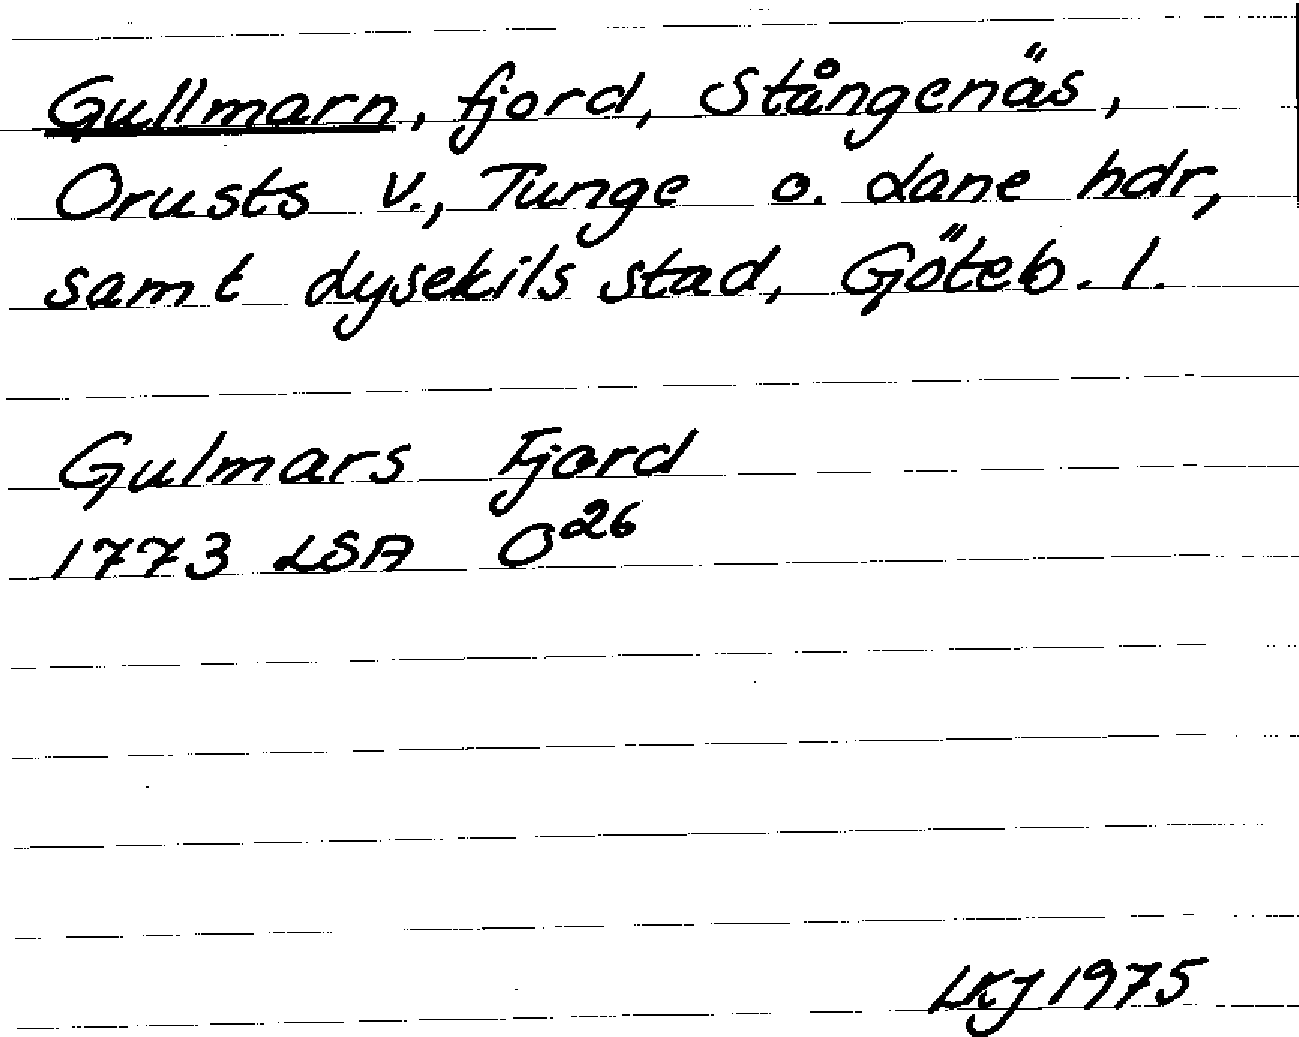 Gullmarn, fjord, Stångenäs,
Orusts v., Tunge o. Lane hdr,
samt Lysekils stad, Göteb. l.
Gulmars Fjord
1773 LSA O26
LKJ 1975